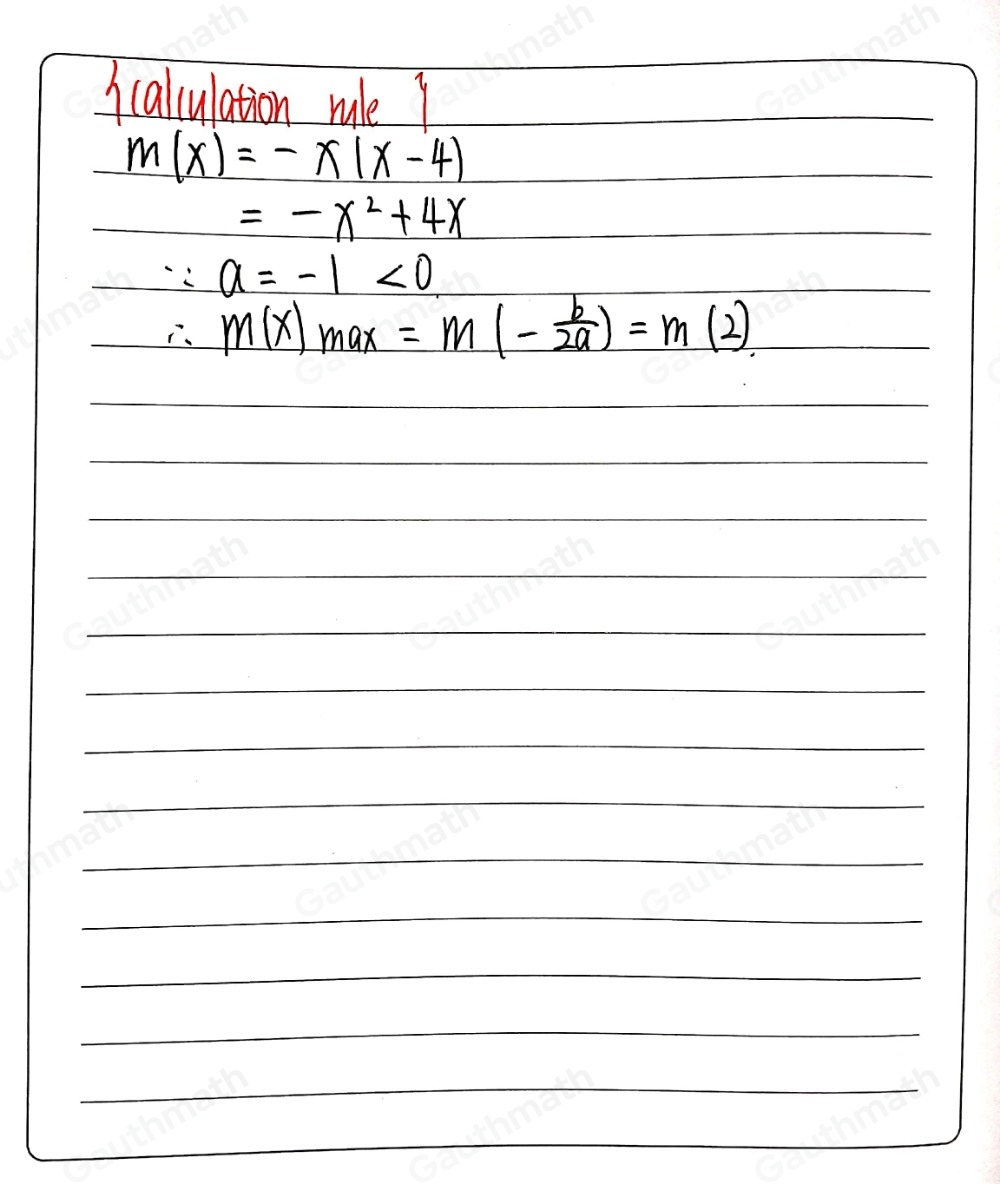 {calculation rule}
m(x) = - x(x - 4)
= - x² + 4x
∵ a = -1 < 0
∴ m(x) max = m(- b/2a) = m(2).
Gauthmath